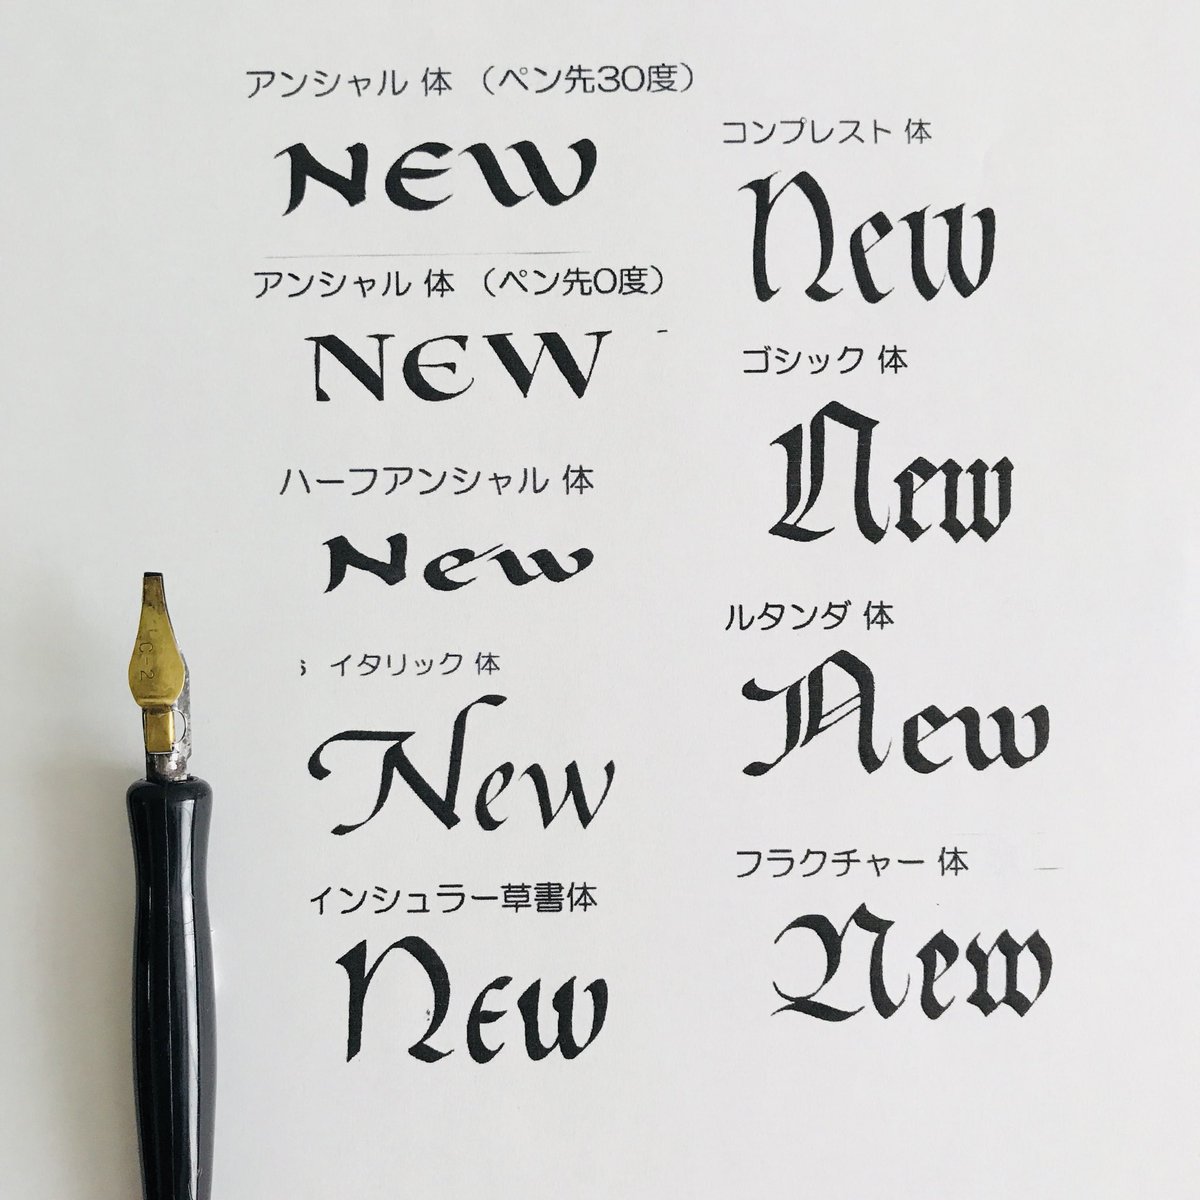 アンシャル 体 （ペン先30度）
NEW
アンシャル 体 （ペン先0度）
NEW
ハーフアンシャル 体
New
s イタリック 体
New
インシュラー草書体
New
コンプレスト 体
New
ゴシック 体
New
ルタンダ 体
New
フラクチャー 体
New
C-2